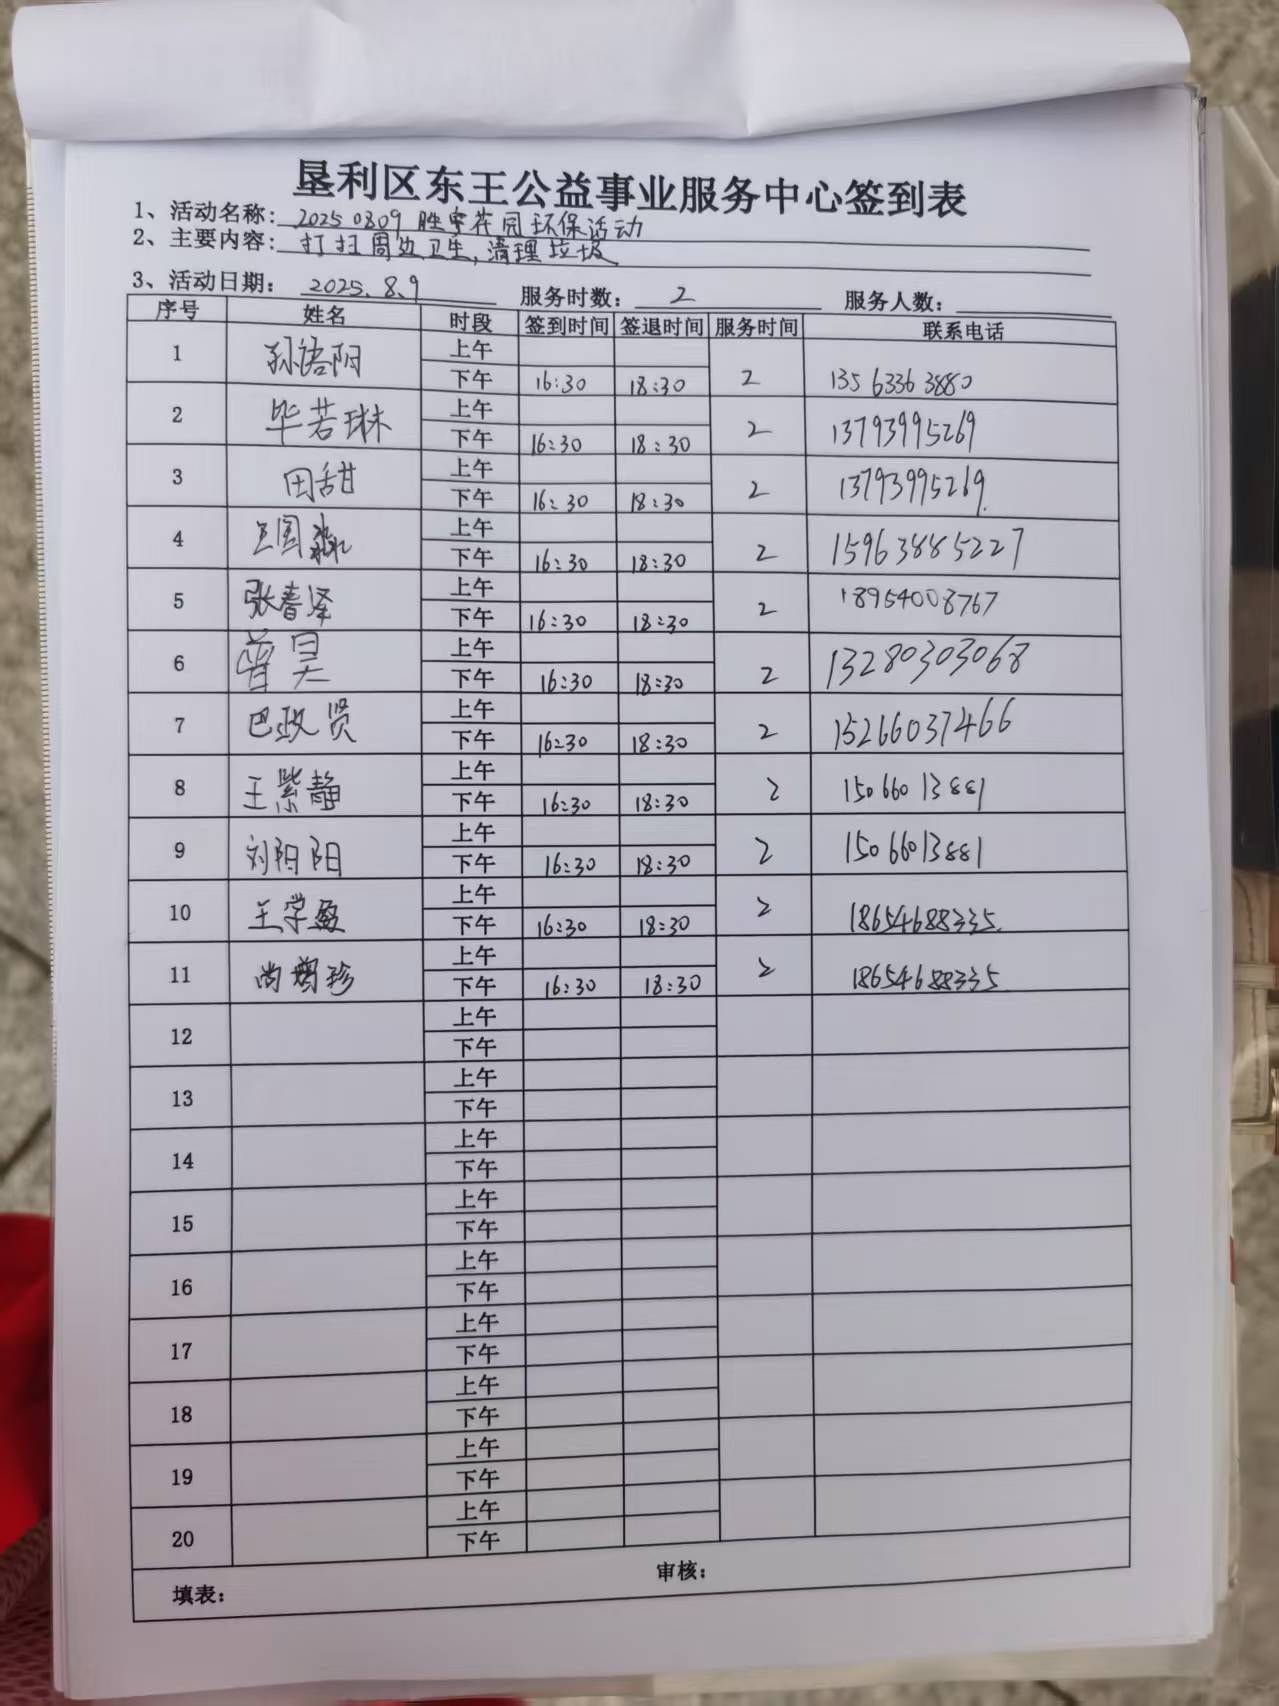 垦利区东王公益事业服务中心签到表
1、活动名称: 2025.0809 胜宇花园环保活动
2、主要内容: 打扫周边卫生,清理垃圾
3、活动日期: 2025.8.9 服务时数: 2 服务人数:
序号 姓名 时段 签到时间 签退时间 服务时间 联系电话
1 孙语阳 上午
下午 16:30 18:30 2 13563363880
2 毕若琳 上午
下午 16:30 18:30 2 13793995269
3 田甜 上午
下午 16:30 18:30 2 13793995269
4 王国淼 上午
下午 16:30 18:30 2 15963885227
5 张春泽 上午
下午 16:30 18:30 2 18954008767
6 曾昊 上午
下午 16:30 18:30 2 13280303068
7 巴政贤 上午
下午 16:30 18:30 2 15266037466
8 王紫静 上午
下午 16:30 18:30 2 15066013881
9 刘阳阳 上午
下午 16:30 18:30 2 15066013881
10 王学盈 上午
下午 16:30 18:30 2 18654688335
11 尚增珍 上午
下午 16:30 18:30 2 18654688335
12 上午
下午
13 上午
下午
14 上午
下午
15 上午
下午
16 上午
下午
17 上午
下午
18 上午
下午
19 上午
下午
20 上午
下午
填表: 审核: